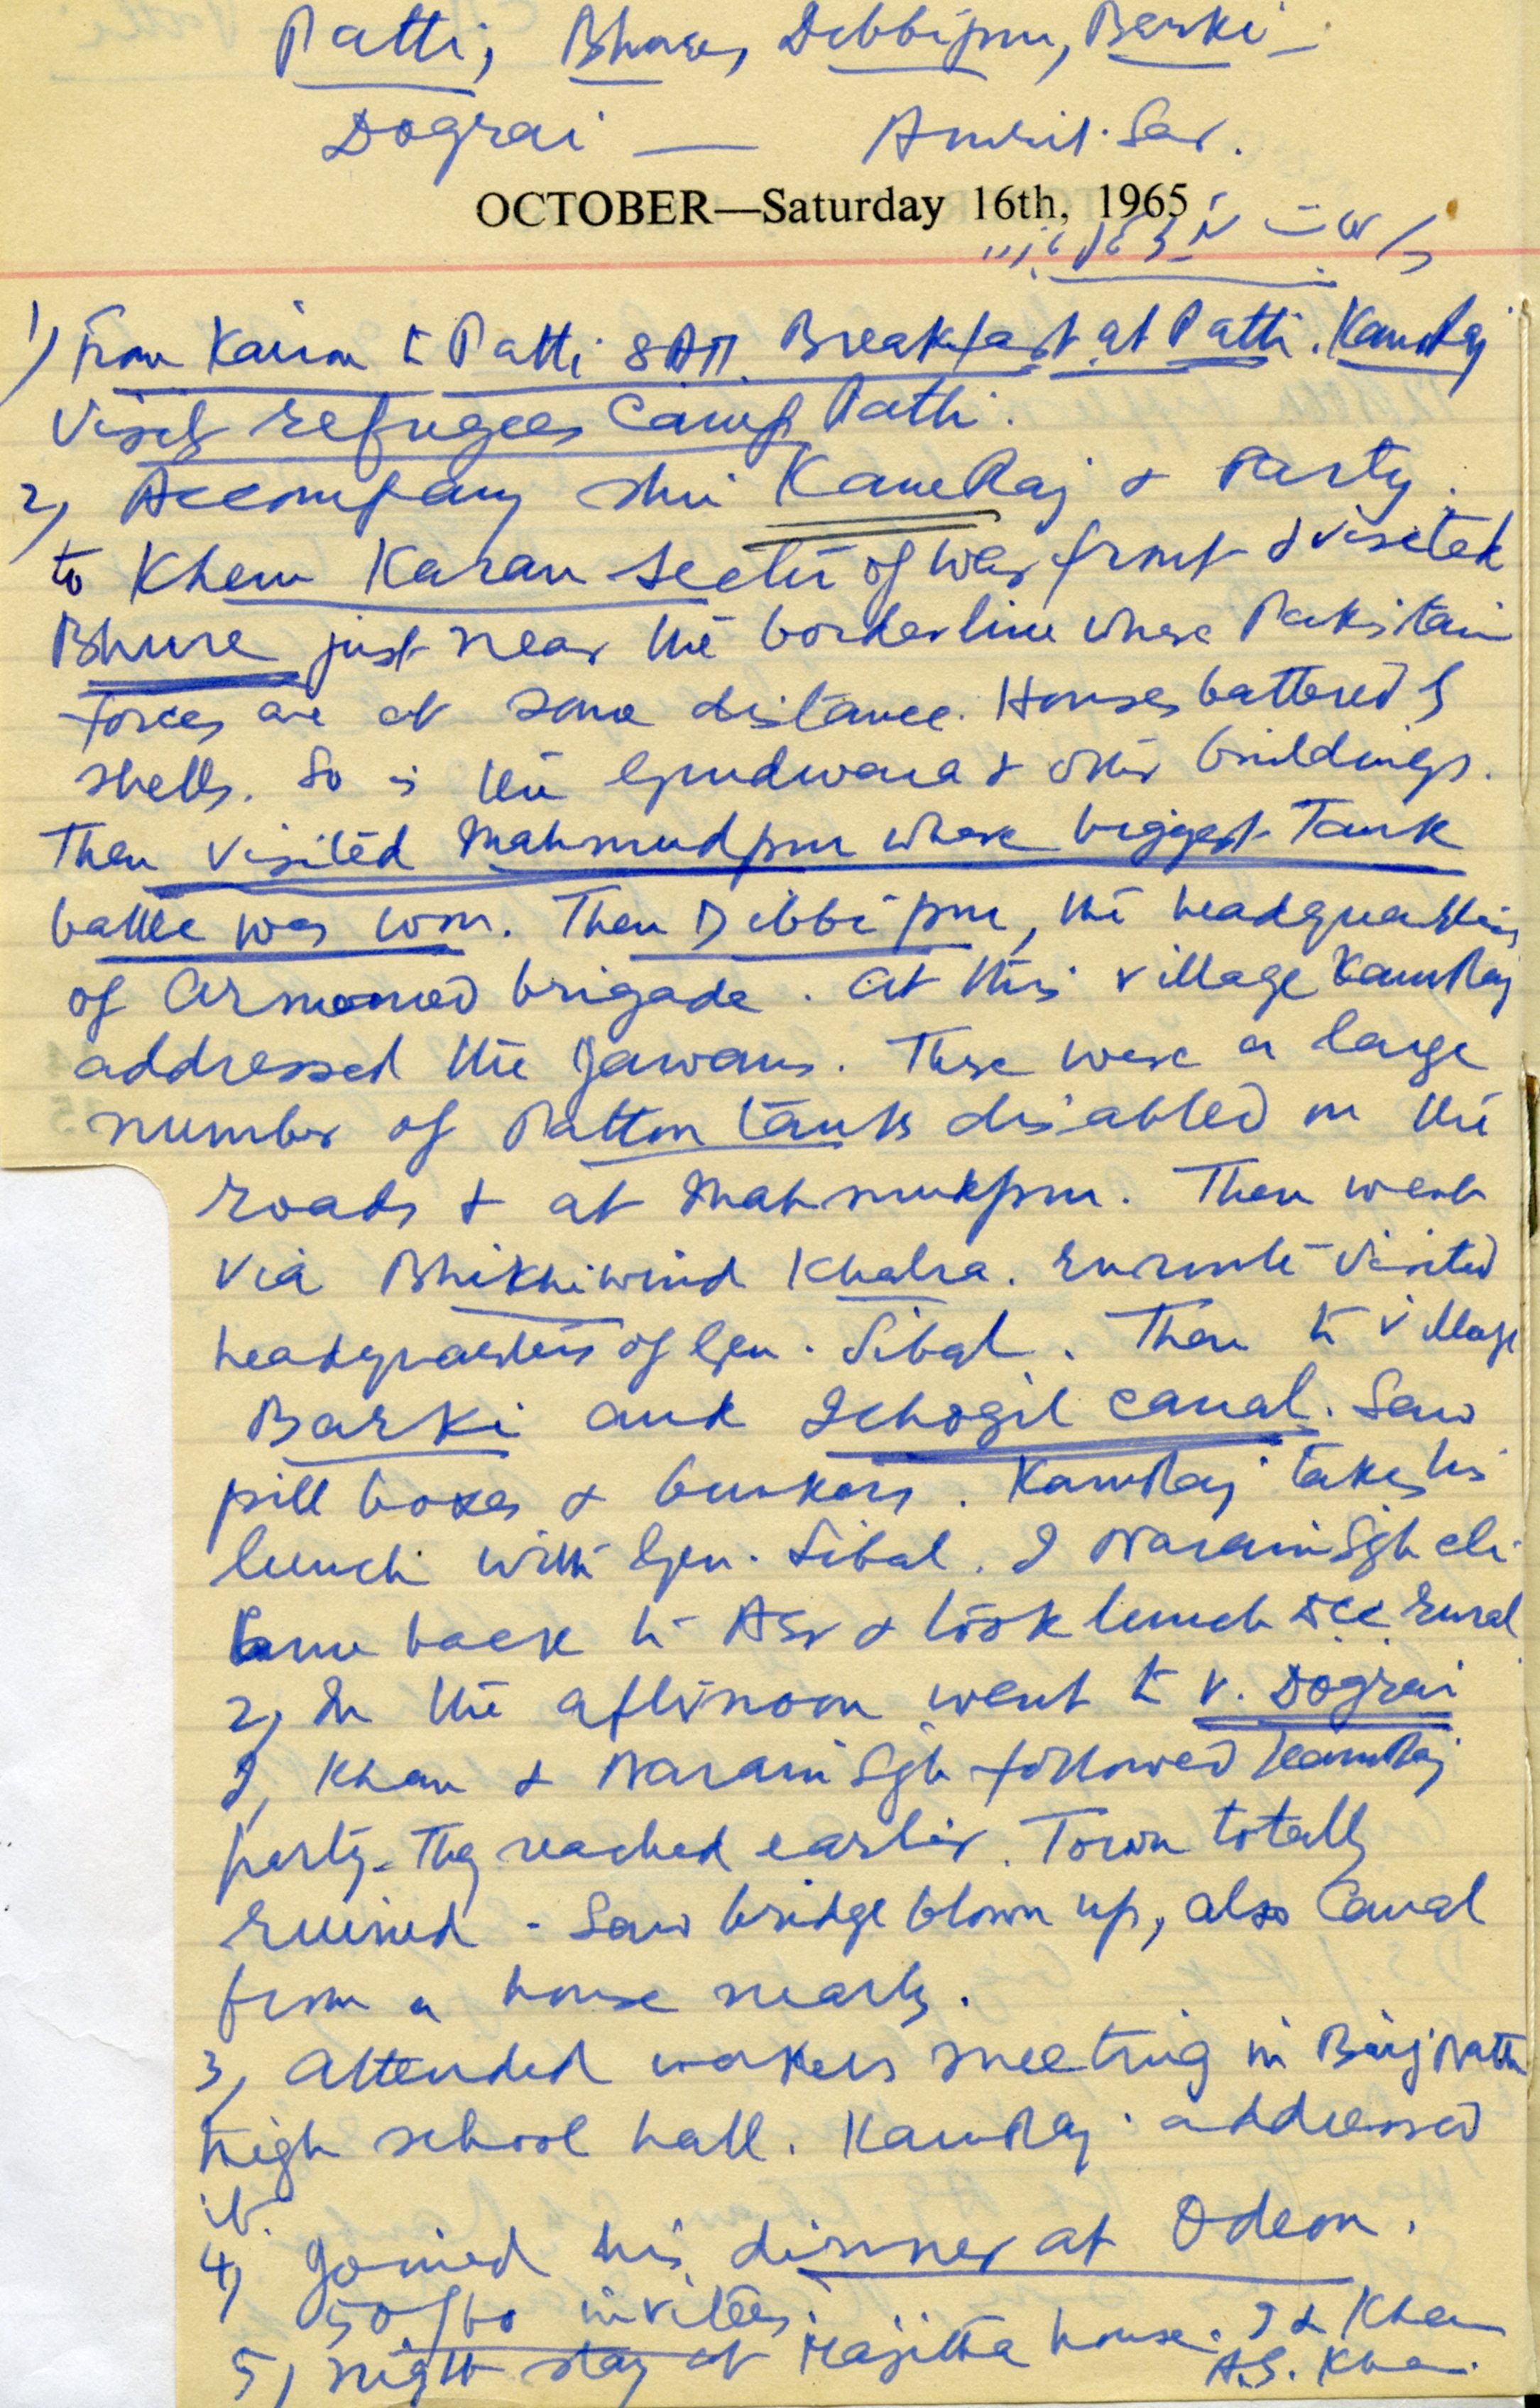 Patti, Bhure, Dibbipur, Barki –
Dograi — Amrit.Sar.
OCTOBER—Saturday 16th, 1965
1) From Kairon to Patti 8 AM. Breakfast at Patti. KamRaj
visits refugees Camp Patti.
2) Accompany Shri KamRaj & Party.
to Khem Karan Sector of war front & visited
Bhure just near the borderline where Pakistani
forces are at some distance. Houses battered by
shells. So is the Gurdwara & other buildings.
Then visited Mahmudpur where biggest Tank
battle was won. Then Dibbipur, the headquarters
of armoured brigade. At this village KamRaj
addressed the Jawans. There were a large
number of Patton tanks disabled on the
roads & at Mahmudpur. Then went
via Bhikhiwind Khalra. Enroute visited
headquarters of Gen. Sibal. Then to village
Barki and Ichogil canal. Saw
pill boxes & bunkers. KamRaj takes his
lunch with Gen. Sibal. I Narain Sgh etc.
came back to ASr & took lunch DCC Rural
2, In the afternoon went to v. Dograi
I, Khan & Narain Sgh followed KamRaj
party. They reached earlier. Town totally
ruined - Saw bridge blown up, also Canal
from a house nearby.
3, Attended workers meeting in Brij Nath
High school hall. KamRaj addressed
it.
4) Joined his dinner at Odeon.
50/60 invitees.
5) Night stay at Majitha house. I & Khan
A.G. Khan.